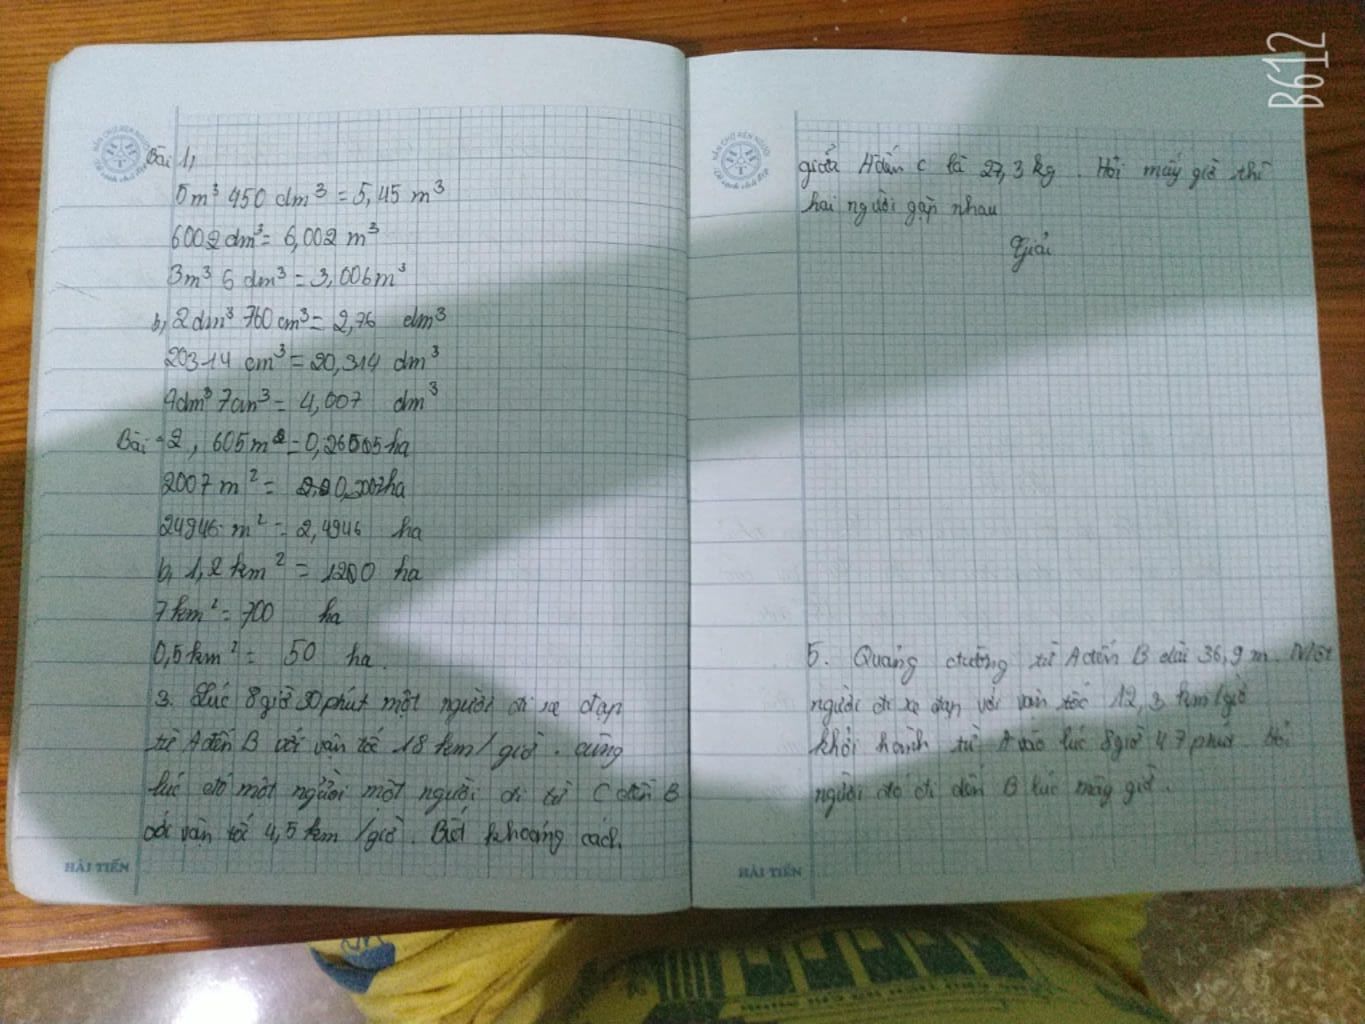 B612
NẮN CHỮ RÈN NGƯỜI
Bài 1,
5m³ 450 dm³ = 5,45 m³
6002 dm³ = 6,002 m³
3m³ 6 dm³ = 3,006m³
b, 2dm³ 760cm³ = 2,76 dm³
20314 cm³ = 20,314 dm³
4dm³ 7cm³ = 4,007 dm³
Bài 2, 605m² =
2007 m² =
24946 m² = 2,4946 ha
b, 1,2 km² = ha
7 km² = 700 ha
0,5 km² = 50 ha.
3. Lúc 8 giờ 30 phút một người đi xe đạp
từ A đến B với vận tốc 18 km/giờ. Cùng
lúc đó một người một người đi từ C đến B
với vận tốc 4,5 km/giờ. Biết khoảng cách
HẢI TIẾN
NẮN CHỮ RÈN NGƯỜI
giữa A đến C là 27,3 kg. Hỏi mấy giờ thì
hai người gặp nhau
Giải
5. Quãng đường từ A đến B dài 36,9 m. Một
người đi xe đạp với vận tốc 12,3 km/giờ
khởi hành từ A vào lúc 8 giờ 47 phút. Hỏi
người đó đi đến B lúc mấy giờ.
HẢI TIẾN